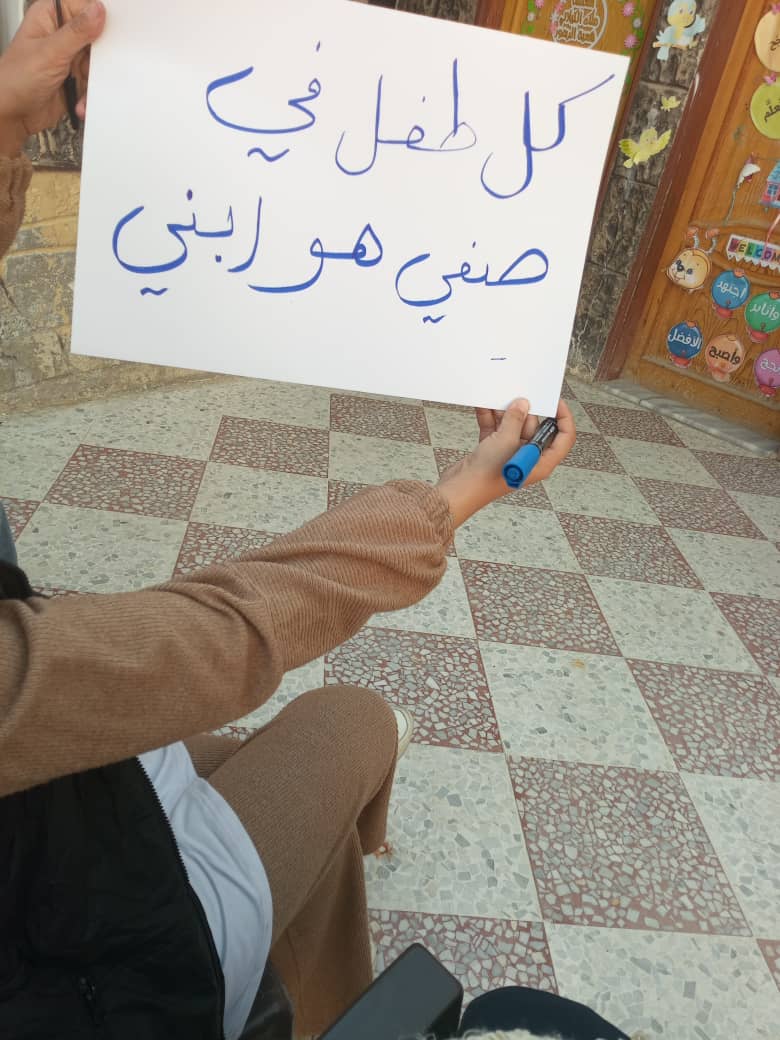 كل طفل في
صفي هو ابني
WELCOME
اجتهد
وثابر
الافضل
وأصبح